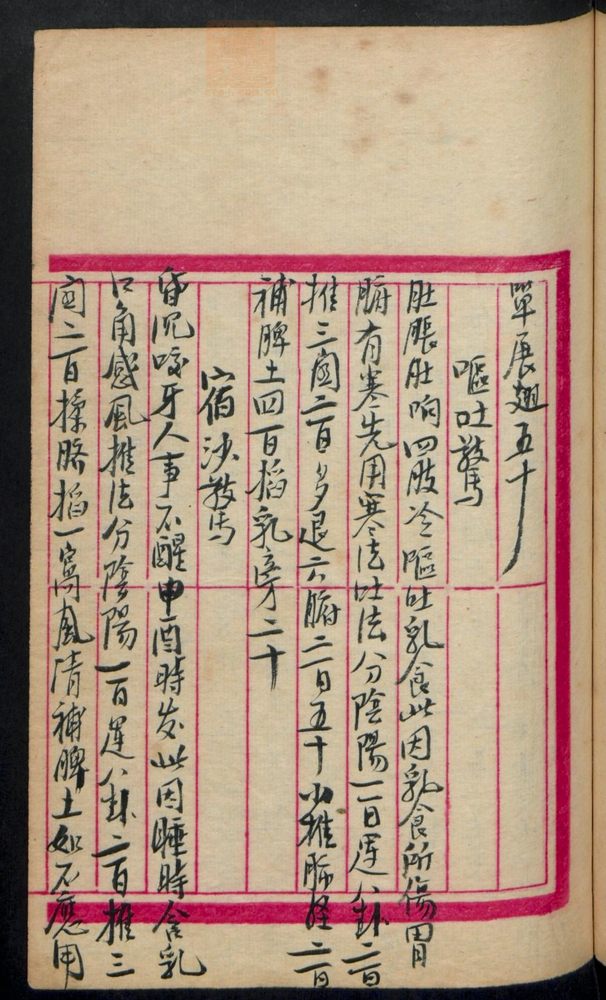 單展翅五十
嘔吐驚
肚脹肚响四肢冷嘔吐乳食此因乳食所傷胃
腑有寒先用寒法吐法分陰陽一百運八卦二百
推三関二百多退六腑二百五十小推脈經二百
補脾土四百掐乳旁二十
宿沙驚
昏沉咬牙人事不醒申酉時发此因睡時含乳
口角感風推法分陰陽一百運八卦二百推三
関二百揉臍掐一窩風清補脾土如不應用